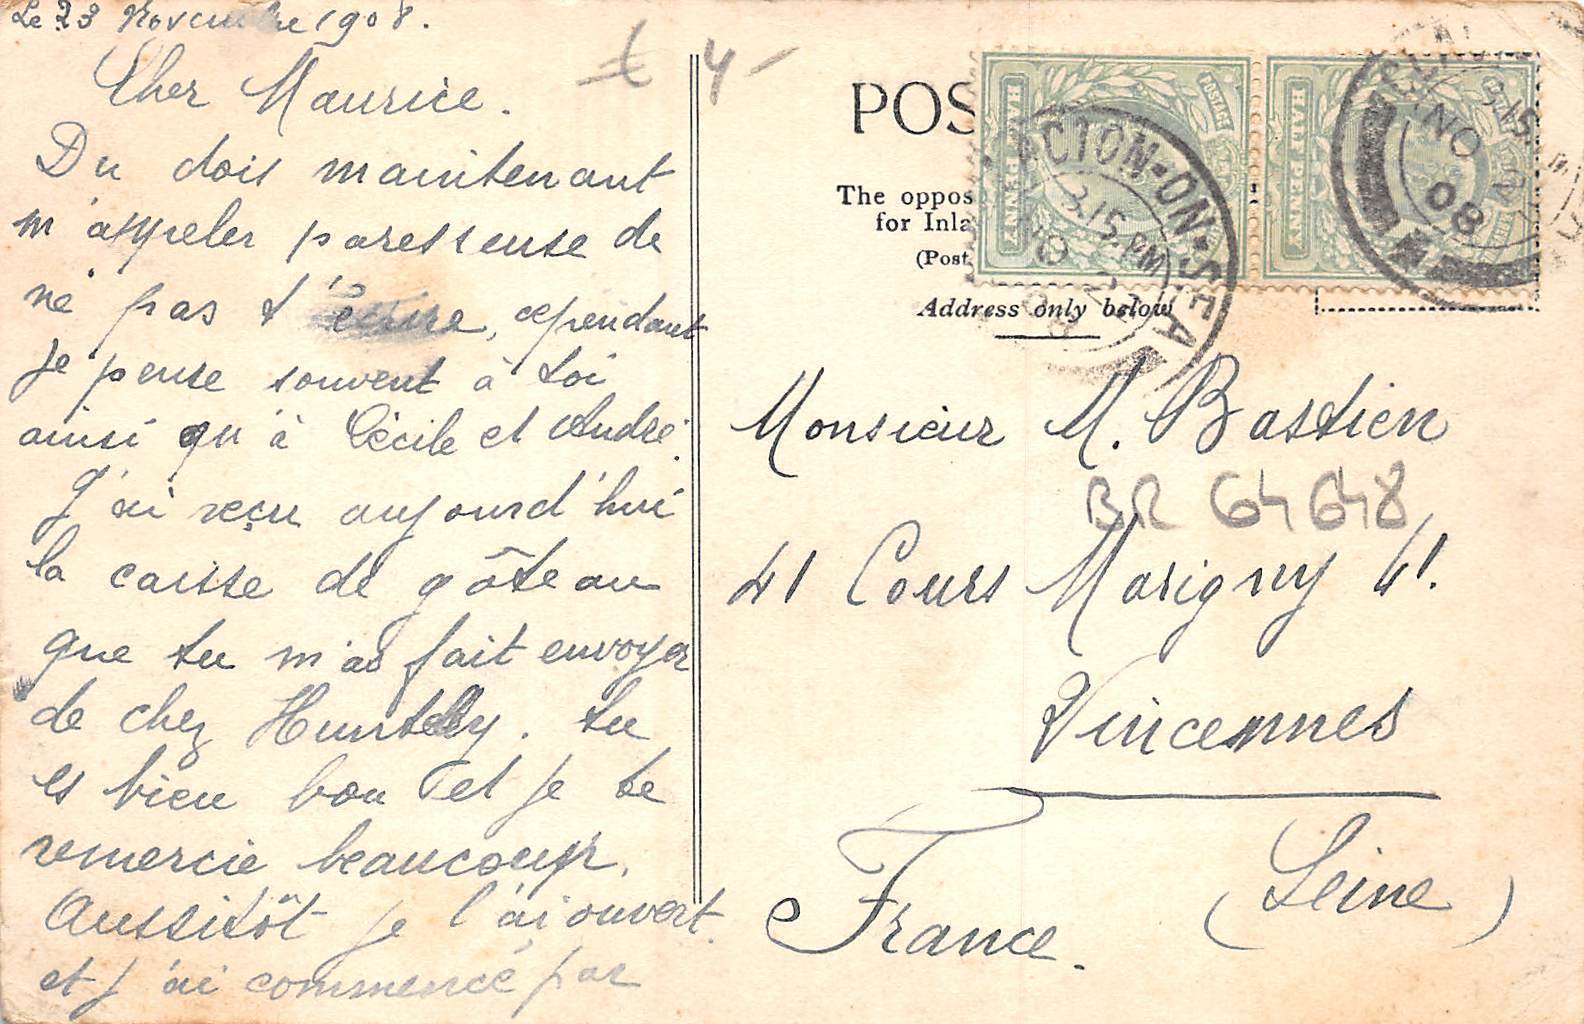 Le 23 Novembre 1908.
Cher Maurice.
Du dois maintenant
m'appeler paresseuse de
ne pas t'écrire, cependant
je pense souvent à toi
ainsi qu'à Cécile et André.
J'ai reçu aujourd'hui
la caisse de gâteau
que tu m'as fait envoyer
de chez Huntley. tu
es bien bon et je te
remercie beaucoup.
Aussitôt je l'ai ouvert.
et j'ai commencé par
4-
POS
The oppos
for Inla
(Post
Address only below
POSTAGE
HALF PENNY
HALF PENNY
CTON-ON-SEA
3.15 PM
NO 2
08
NO 2
08
Monsieur M. Bastien
BR 64648
41 Cours Marigny 41.
Vincennes
(Seine)
France.